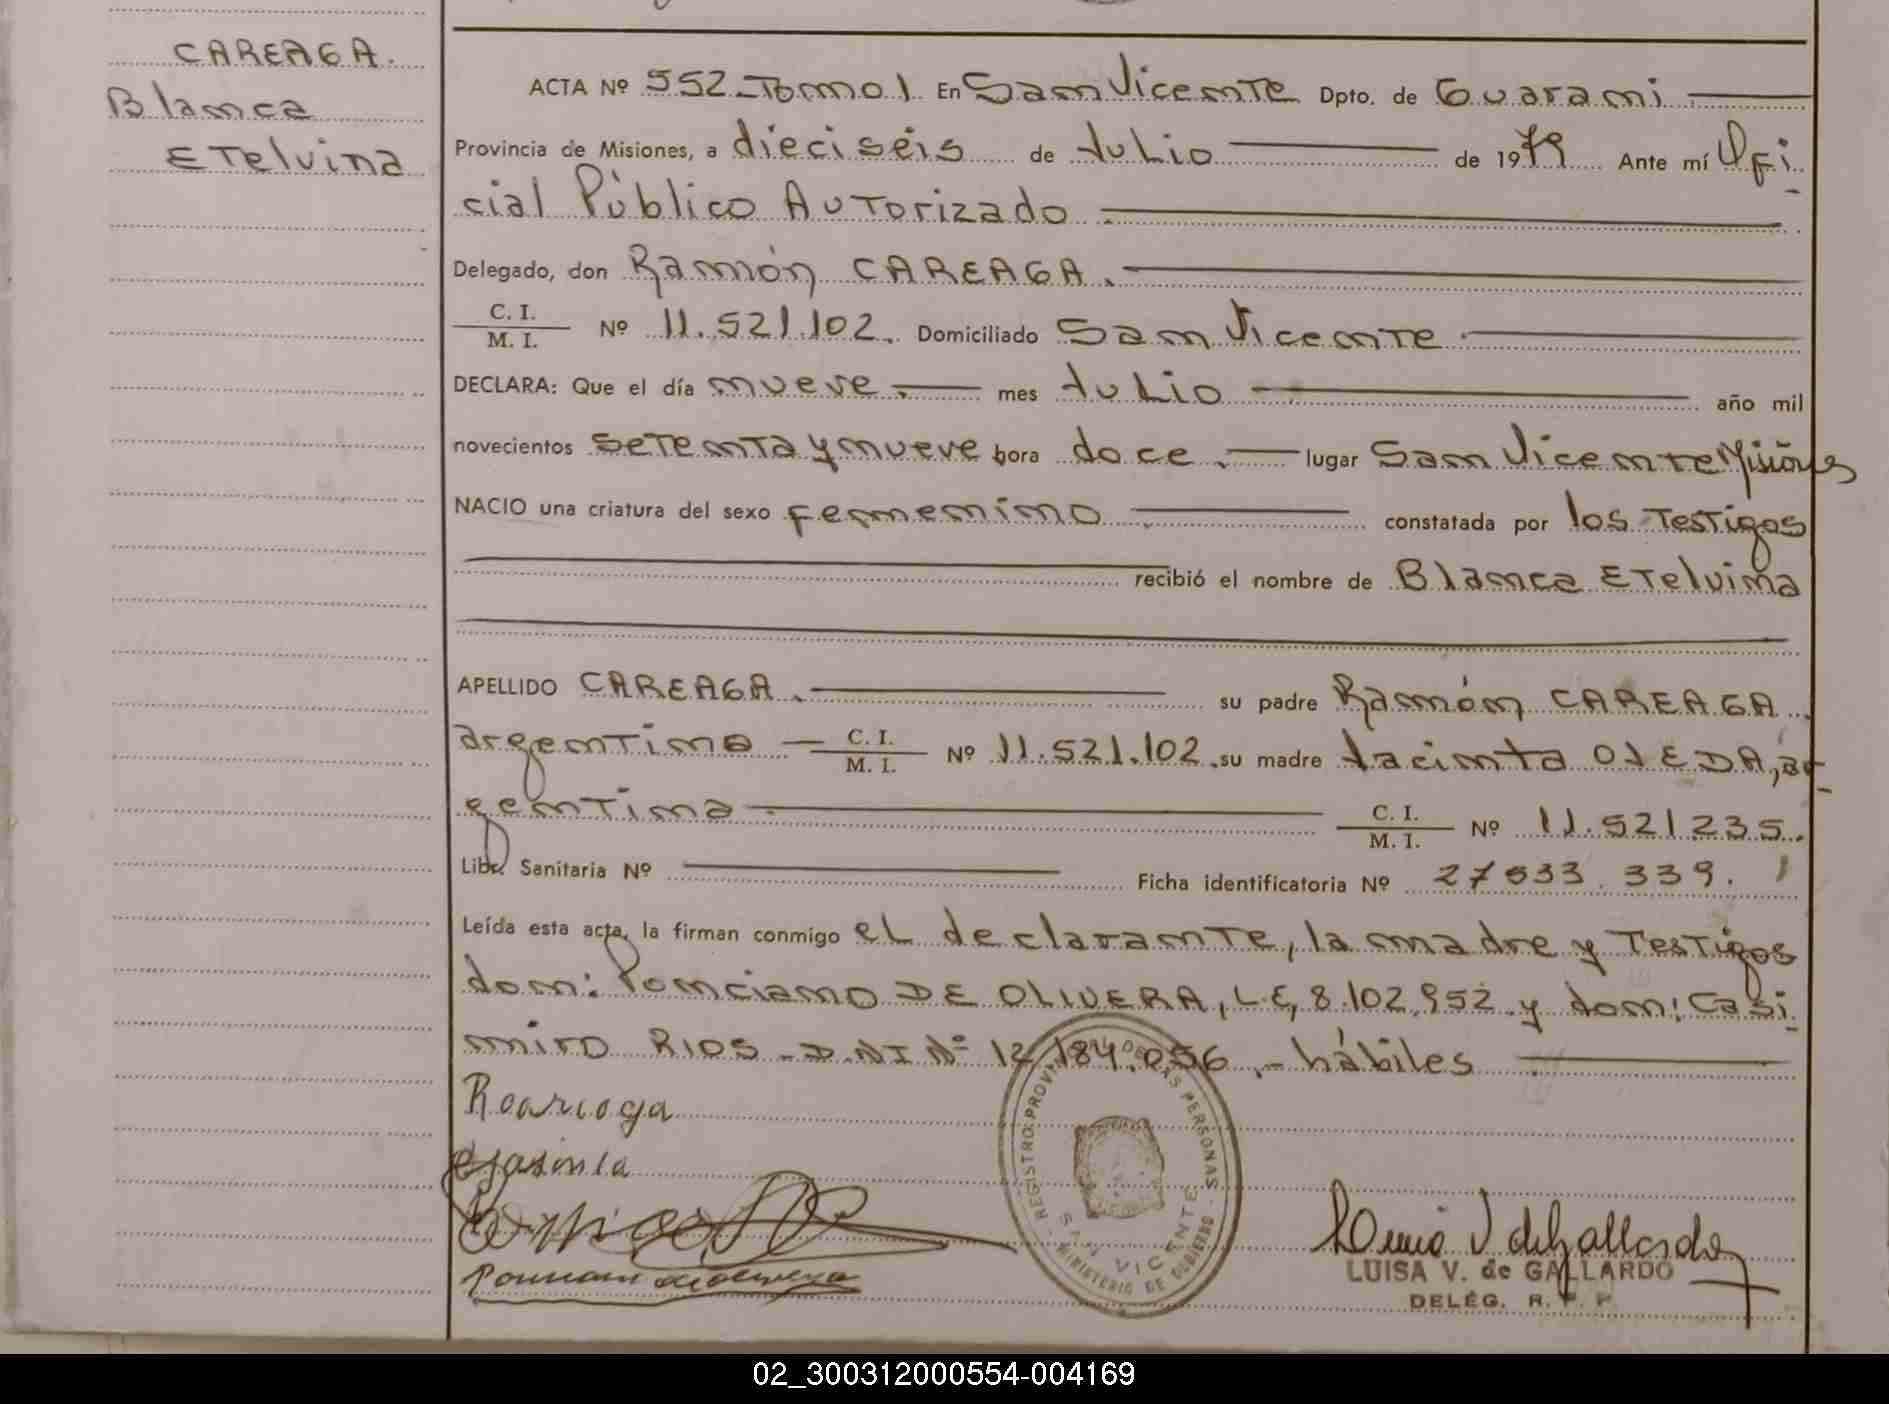 CAREAGA.
Blanca
Etelvina
ACTA Nº 552 - Tomo 1. En San Vicente Dpto. de Guarani
Provincia de Misiones, a dieciséis de Julio de 1979 Ante mí Ofi-
cial Público Autorizado
Delegado, don Ramón CAREAGA.
C. I.
M. I. Nº 11.521.102. Domiciliado San Vicente
DECLARA: Que el día nueve. mes Julio año mil
novecientos setenta y nueve hora doce. lugar San Vicente Misiones
NACIO una criatura del sexo femenino constatada por los Testigos
recibió el nombre de Blanca Etelvina
APELLIDO CAREAGA. su padre Ramón CAREAGA.
argentino C. I. / M. I. Nº 11.521.102. su madre Jacinta OJEDA, ar-
gentina C. I. / M. I. Nº 11.521.235.
Libr. Sanitaria Nº Ficha identificatoria Nº 27 633 339.
Leída esta acta, la firman conmigo el declarante, la madre y Testigos
don: Ponciano DE OLIVERA, L.E, 8.102.952 y don: Casi-
miro RIOS - D.N.I Nº 12.184.056.- hábiles
Jasinta
REGISTRO PROVINCIAL DE LAS PERSONAS
SAN VICENTE
MINISTERIO DE GOBIERNO
LUISA V. de GALLARDO
DELEG. R. P. P.
02_300312000554-004169